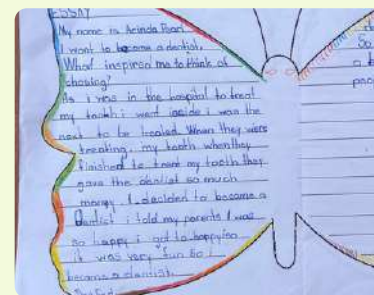 ESSAY
My name is Acinda Pearl
I want to become a dentist.
What inspired me to think of
chosing?
As I was in the hospital to treat
my tooth i went inside i was the
next to be treated When they were
treating my tooth when they
finished to treat my tooth they
gave the dentist so much
money I decided to become a
Dentist i told my parents I was
so happy i got to happy so
it was very fun so I
become a dentist.
The End
So
a b